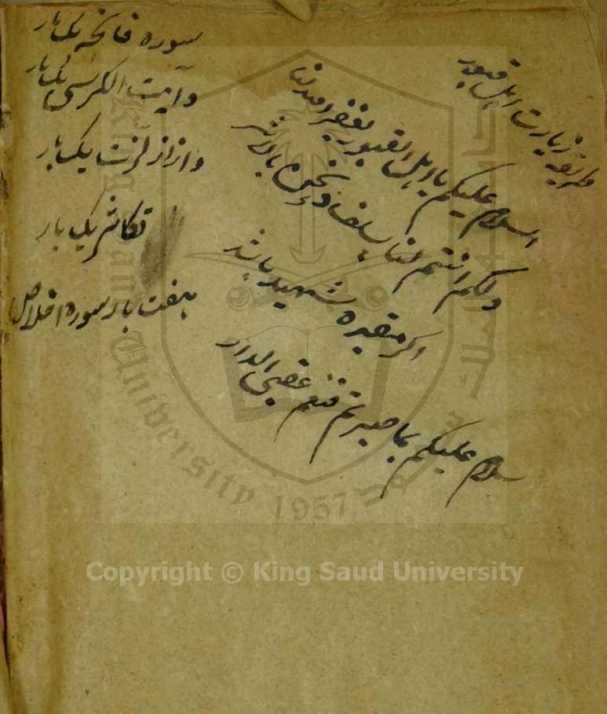 طریقه زیارت اهل قبور
السلام علیکم یا اهل القبور یغفر الله لنا
ولکم انتم لنا سلف ونحن بالاثر
اکر مقبره شهید باشد
سلام علیکم بما صبرتم فنعم عقبی الدار
سوره فاتحه یک بار
وآیت الکرسی یک بار
واذازلزلت یک بار
تکاثر یک بار
هفت بار سوره اخلاص
King Saud University
1957
Copyright © King Saud University